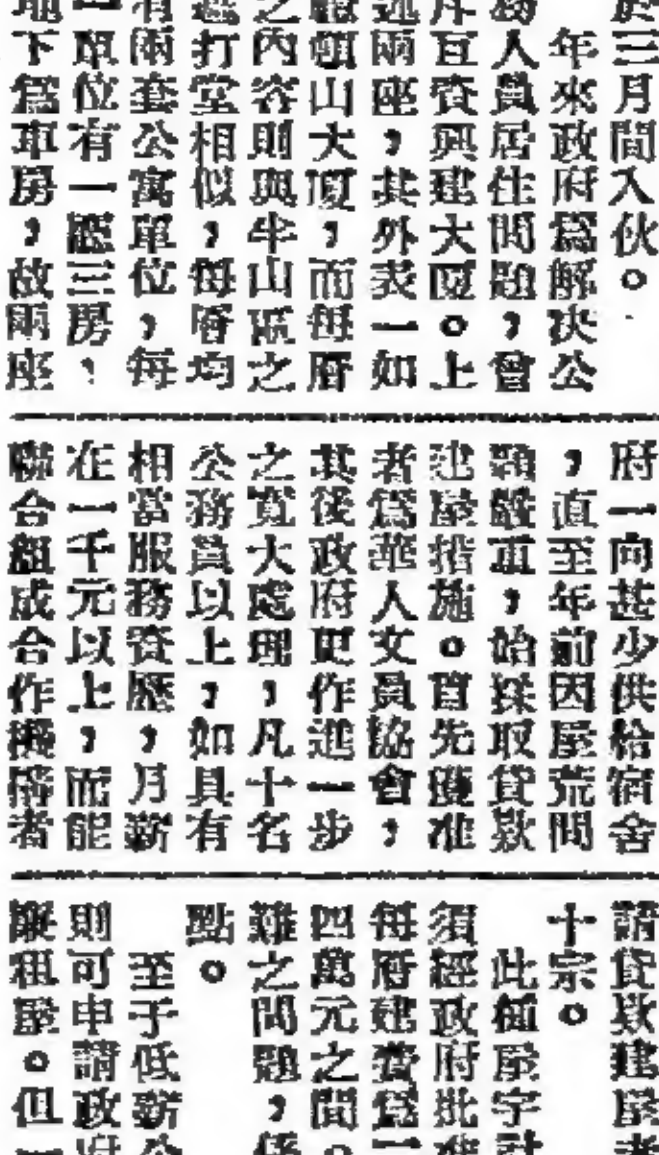 於三月間入伙。
年來政府爲解決公
務人員居住問題，曾
斥巨資興建大厦。上
述兩座，其外表一如
頓山大厦，而每層
之內容則與半山區之
打堂相似，每層均
有兩套公寓單位，每
一單位有一廳三房、
地下爲車房，故兩座
府一向甚少供給宿舍
，直至年前因屋荒問
題嚴重，始採取貸欵
建屋措施。首先獲准
者爲華人文員協會，
其後政府更作進一步
之寬大處理，凡十名
公務員以上，如具有
相當服務資歷，月薪
在一千元以上，而能
聯合組成合作機構者
請貸欵建屋者
十宗。
此種屋宇計
須經政府批准
每層建費爲一
四萬元之間。
難之問題，係
點。
至于低薪公
則可申請政府
廉租屋。但一